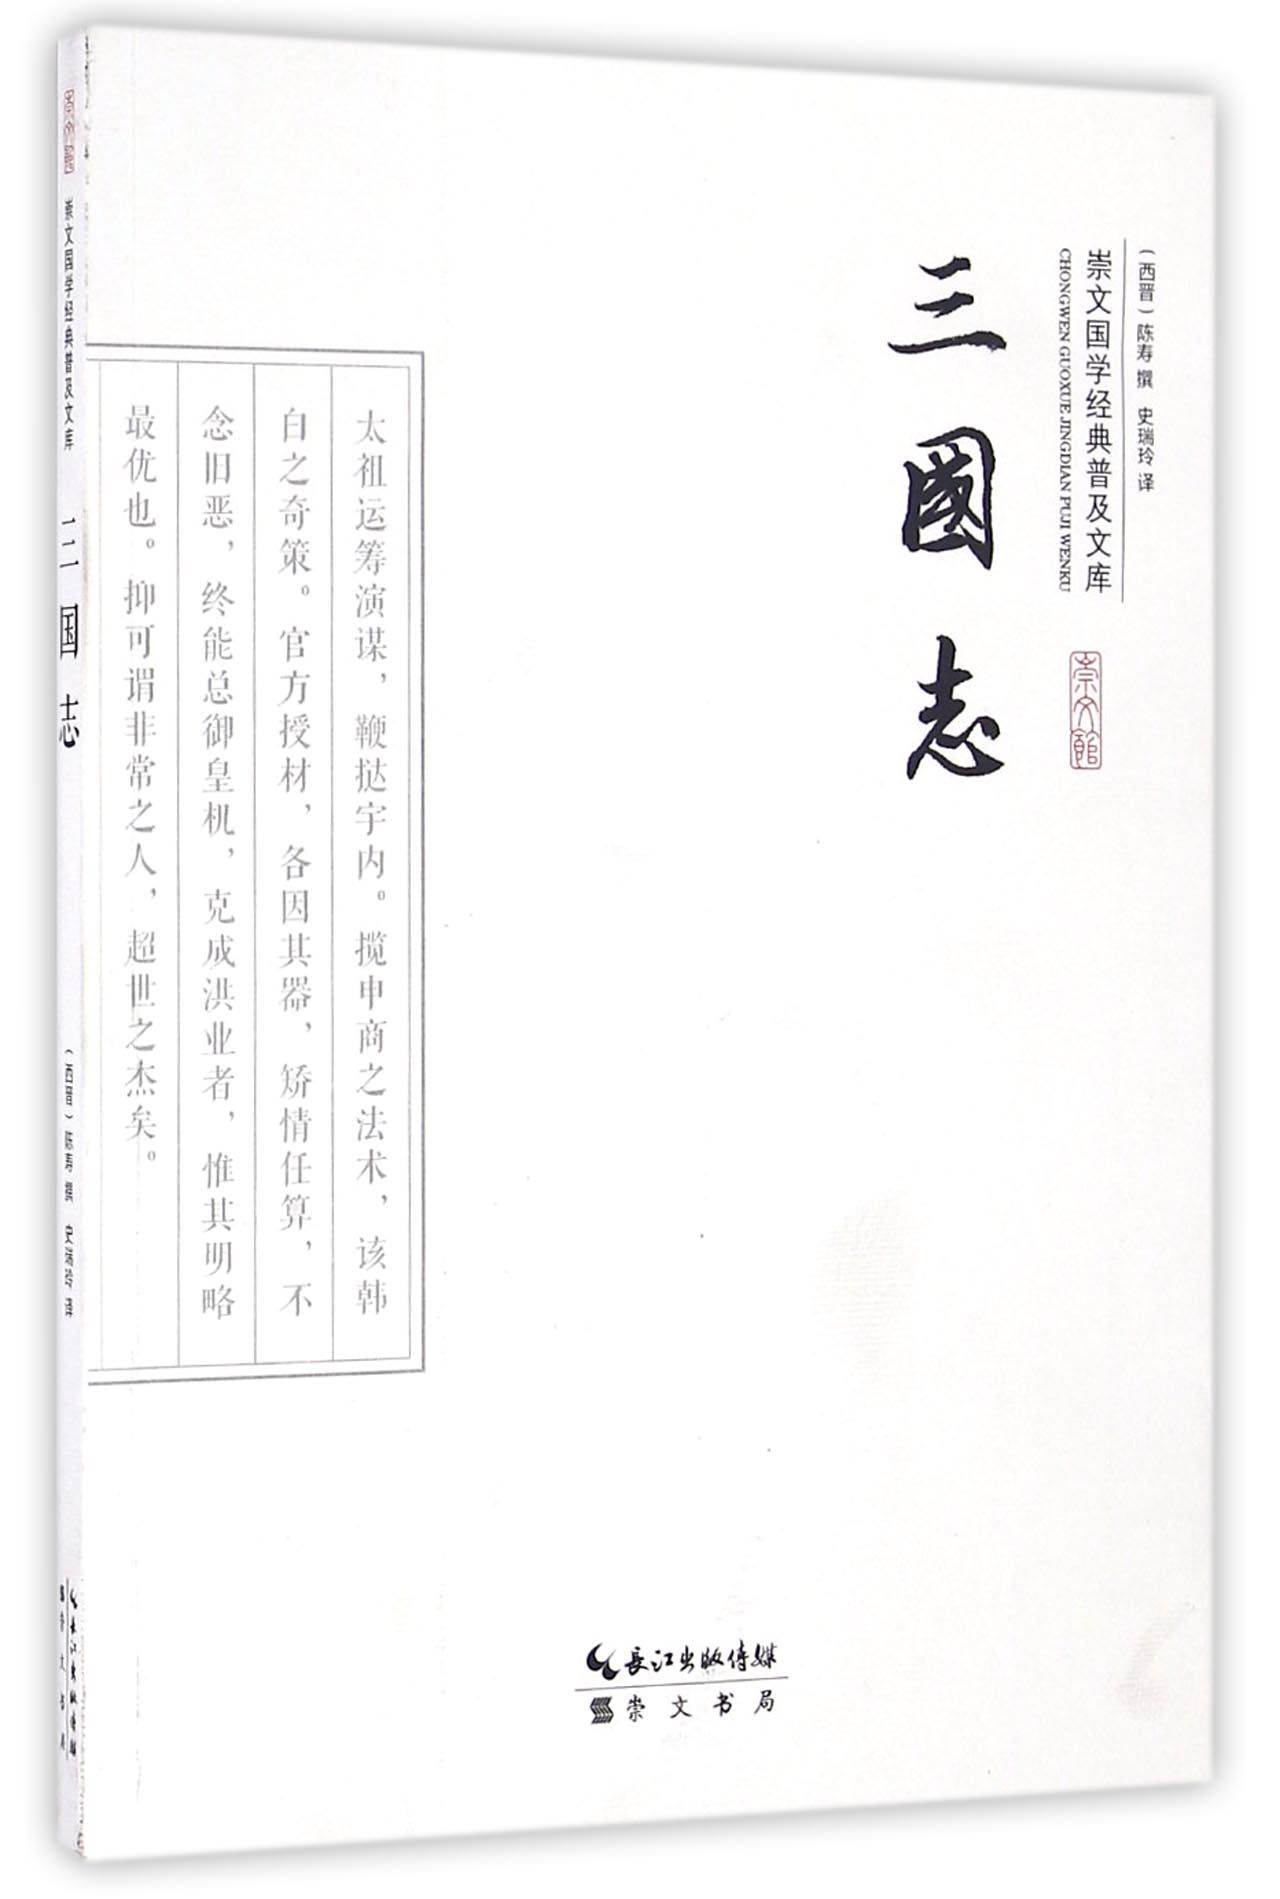 （西晋）陈寿 撰 史瑞玲 译
崇文国学经典普及文库
CHONGWEN GUOXUE JINGDIAN PUJI WENKU
崇文館
三國志
太祖运筹演谋，鞭挞宇内。揽申商之法术，该韩
白之奇策。官方授材，各因其器，矫情任算，不
念旧恶，终能总御皇机，克成洪业者，惟其明略
最优也。抑可谓非常之人，超世之杰矣。
長江出版传媒
崇文书局
崇文館
崇文国学经典普及文库
三国志
（西晋）陈寿 撰 史瑞玲 译
長江出版传媒
崇文书局